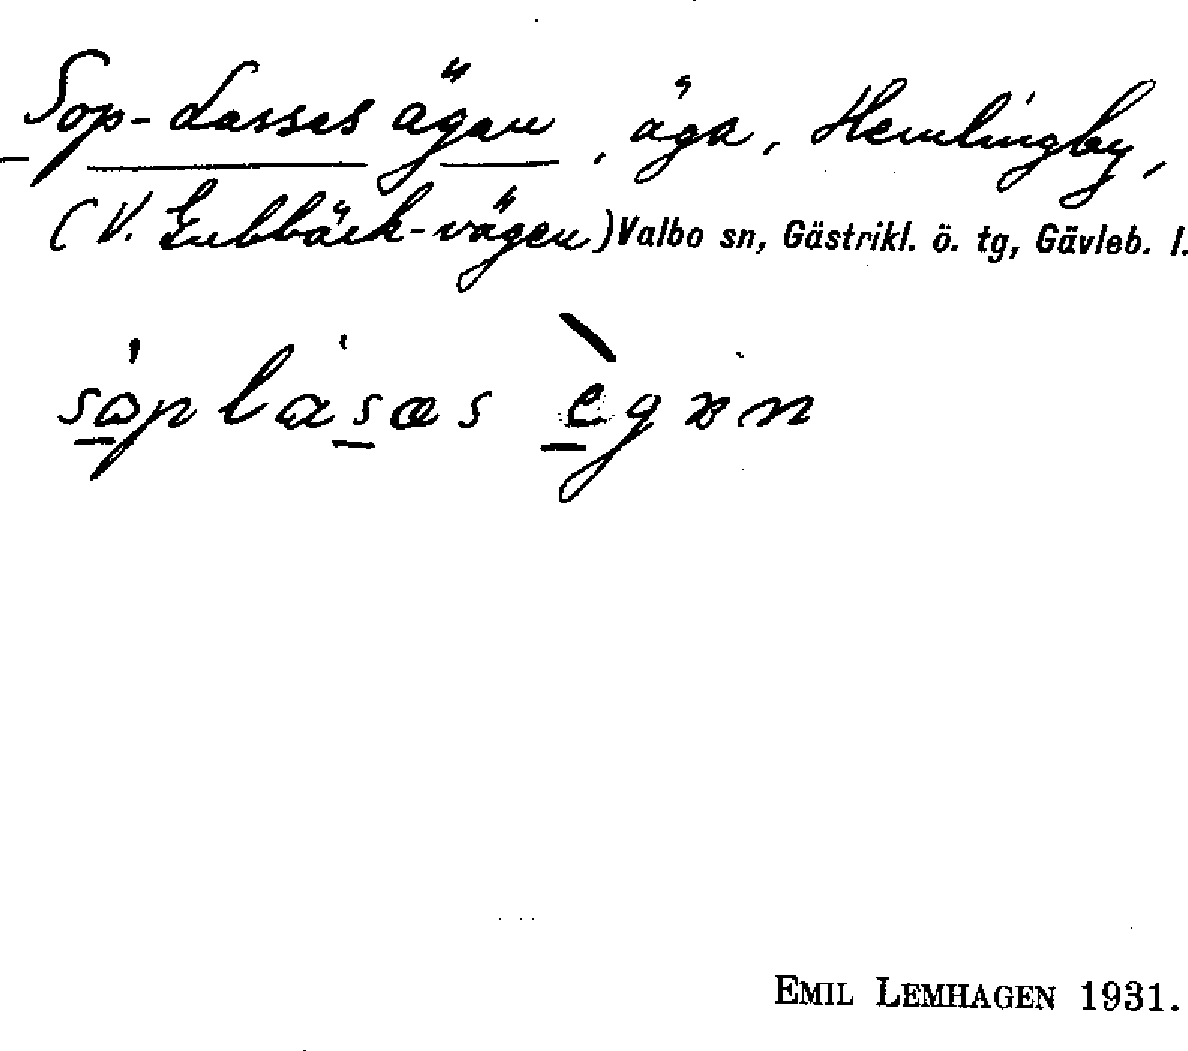 Sop-Lasses ägan, äga, Hemlingby,
(V. Gubbäck-vägen) Valbo sn, Gästrikl. ö. tg, Gävleb. l.
sòplásæs ègɐn
EMIL LEMHAGEN 1931.